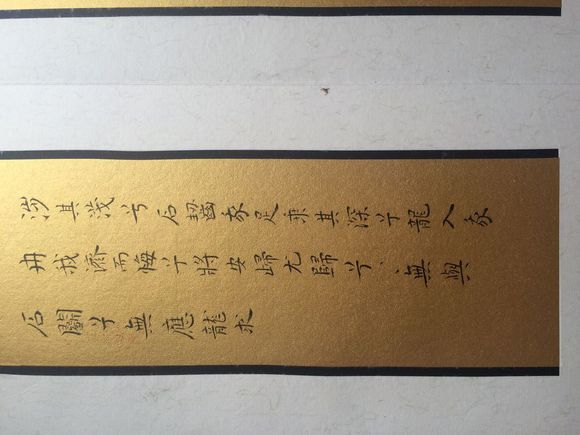 涉其淺兮石齧我足乘其深兮龍入我
舟我濟而悔兮將安歸尤歸兮、、無與
石鬬兮無應龍求